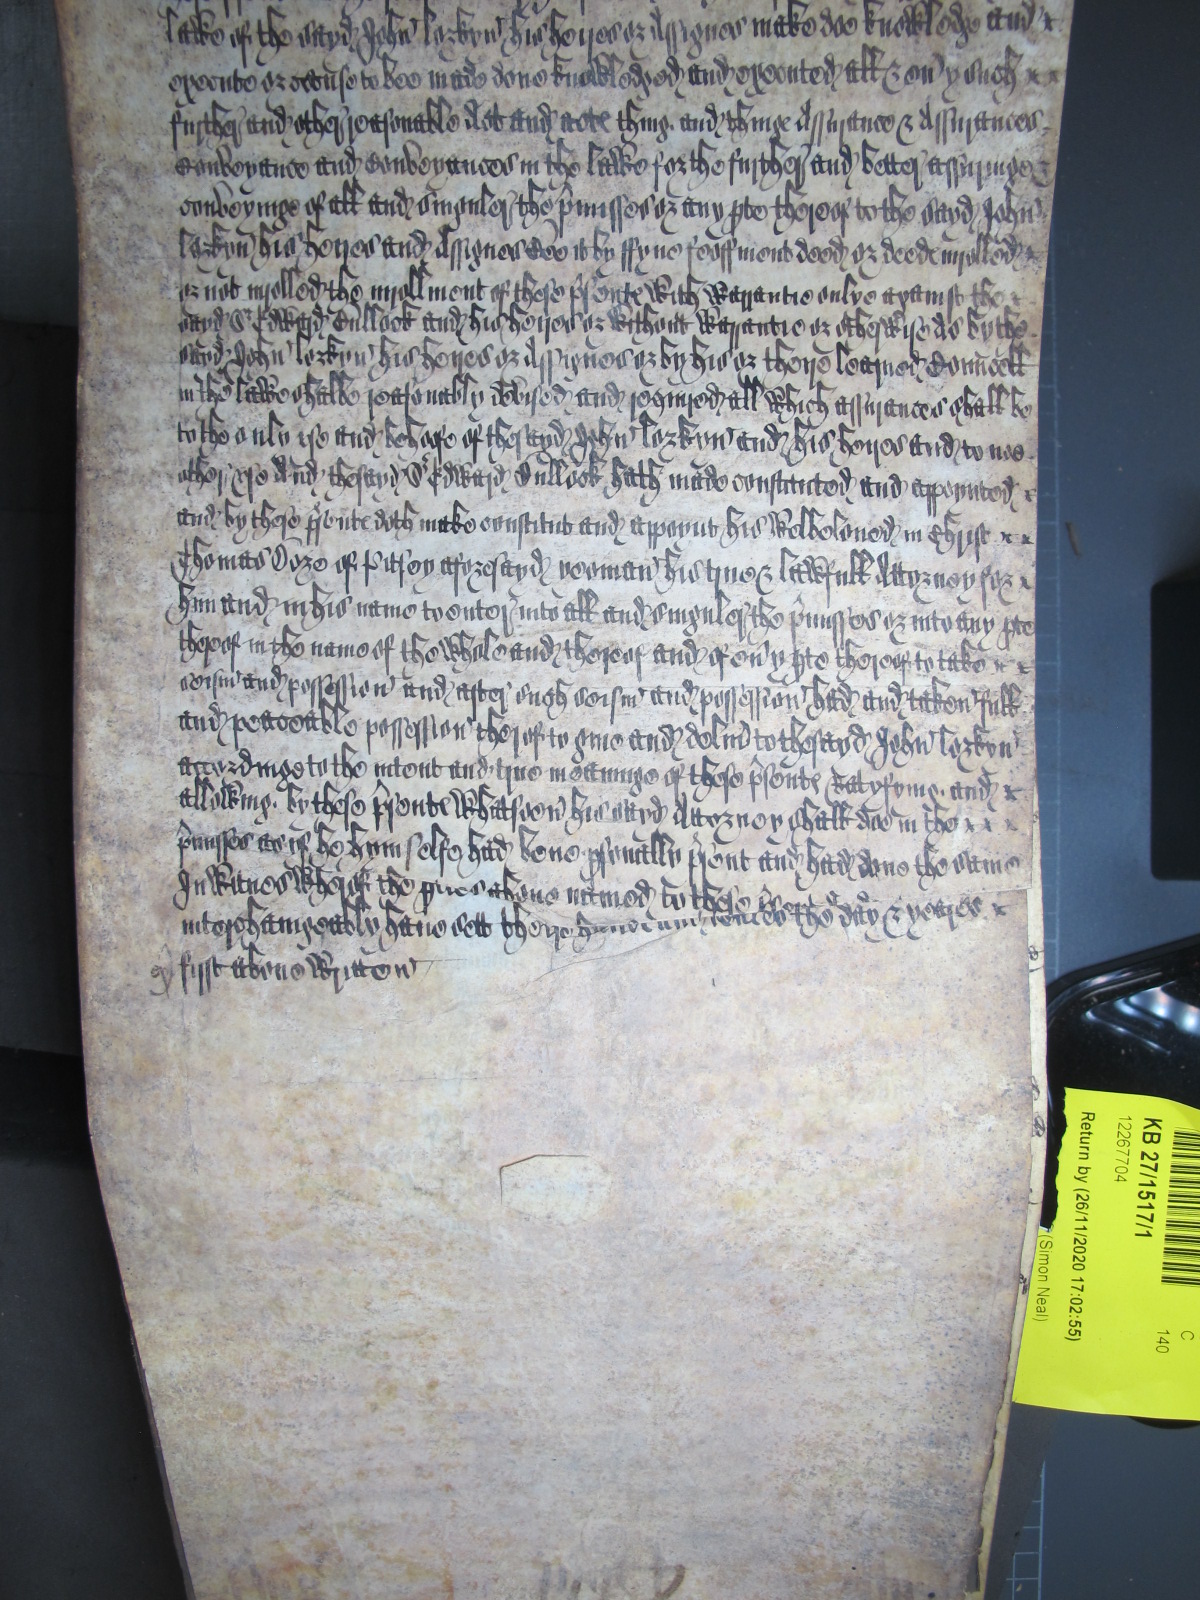 lawe of the sayd John Lorkyn his heyres or Assignes make doe knowledge and
execute or cause to bee made done knowledged and executed all & evy such
further and other reasonable Act and acte thing and thinge Assurance & Assurances
Conveyance and Conveyances in the lawe for the further and better assuringe &
conveyinge of all and singuler the pmisses or any pte thereof to the sayd John
Lorkyn his heyres and Assignes Bee it by ffyne feoffment deed or deede inrolled
or not inrolled the inrollment of these psente with Warrantie onlye against the
sayd Sr Edward Bullock and his heyres or without Warrantie or otherwise As by the
sayd John Lorkyn his heyres or Assignes or by his or theyre learned Councell
in the lawe shalbe reasonably devised and required all Which assurances shall be
to the only use and behofe of the sayd John Lorkyn and his heyres and to noe
other use And the sayd Sr Edward Bullock hath made constituted and appoynted
and by these psente doth make constitut and appoynt his Welbeloued in Christ
Thomas of Pitsey aforesayd yeoman his true & lawfull Attorney for
him and in his name to enter into all and singuler the pmisses or into any pte
thereof in the name of the Whole and thereof and of evy pte thereof to take
seisin and possession and after such seisin and possession had and taken full
and peaceable possession therof to giue and delivr to the sayd John Lorkyn
accordinge to the intent and true meaninge of these psente Ratyfying and
allowing by these psente Whatsoevr his sayd Attorney shall doe in the
pmisses as if he hym selfe had bene psonally psent and had done the same
In Witnes Whereof the pties aboue named to these
interchangeably haue sett theyre the day & yeares
first aboue Written
KB 27/1517/1
12267704
Return by (26/11/2020 17:02:55)
(Simon Neal)
C
140